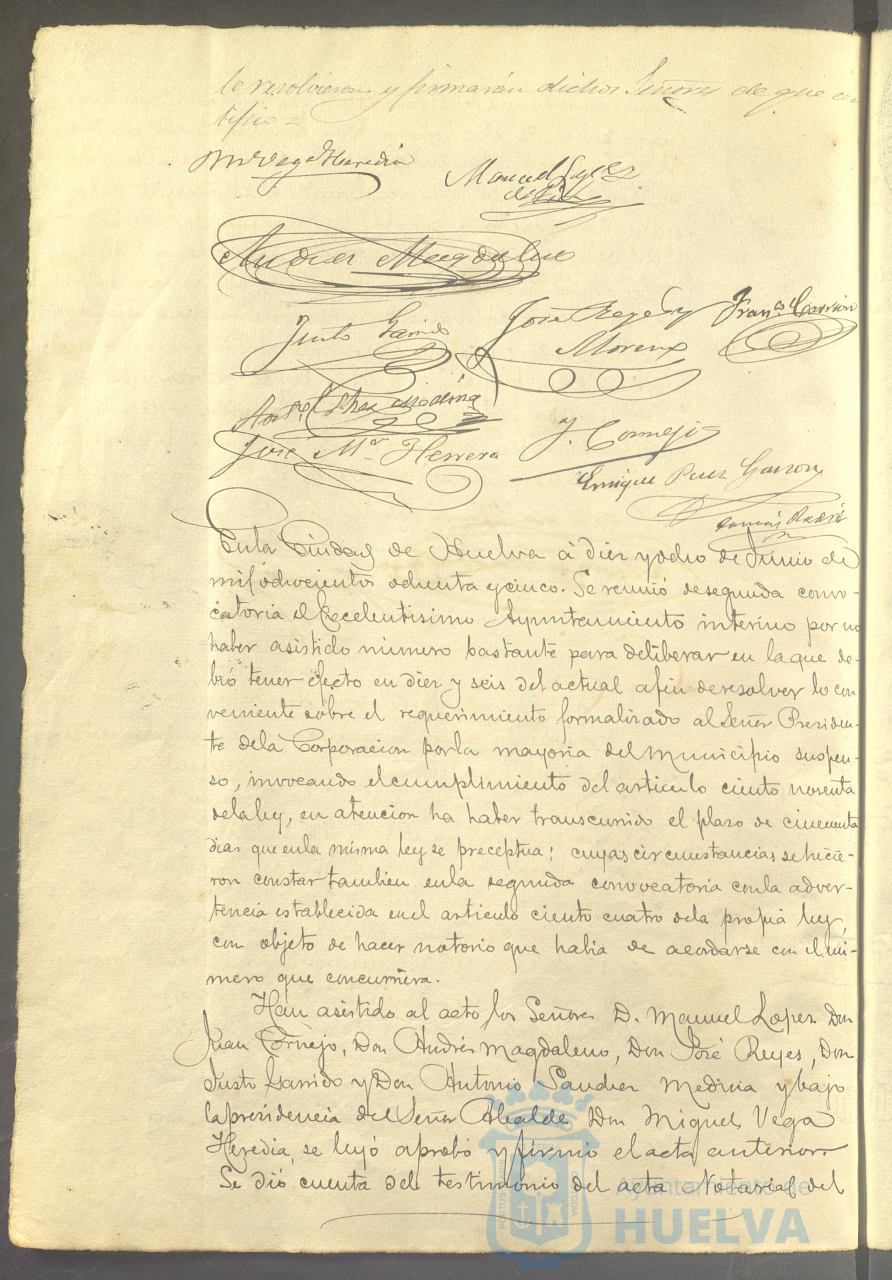 lo resolvieron y firmarán dichos Señores de que cer
tifico =
M. Vega Heredia
Manuel Lopez
Andres Magdaleno
Justo Garrido
José Reyes y
Moreno
Franco. Carrion
Anto. Schez Medina
José Ma. Herrera
J. Cornejo
Enrique Perez Garzon
En la Ciudad de Huelva á diez y ocho de Junio de
mil ochocientos ochenta y cinco. Se reunió de segunda convo-
catoria el Excelentisimo Ayuntamiento interino por no
haber asistido número bastante para deliberar en la que de-
bió tener efecto en diez y seis del actual a fin de resolver lo con
veniente sobre el requerimiento formalizado al Señor Presiden-
te de la Corporacion por la mayoria del Municipio suspen-
so, invocando el cumplimiento del articulo ciento noventa
de la ley, en atencion ha haber transcurrido el plazo de cincuenta
dias que en la misma ley se preceptua; cuyas circunstancias se hicie-
ron constar tambien en la segunda convocatoria con la adver-
tencia establecida en el articulo ciento cuatro de la propia ley,
con objeto de hacer notorio que habia de acordarse con el nú-
mero que concurriera.
Han asistido al acto los Señores D. Manuel Lopez Don
Juan Cornejo, Don Andrés Magdaleno, Don José Reyes, Don
Justo Garrido y Don Antonio Sanchez Medina y bajo
la presidencia del Señor Alcalde Don Miguel Vega
Heredia, se leyó aprobó y firmó el acta anterior.
Se dió cuenta del testimonio del acta Notarial del
Ayuntamiento de
HUELVA